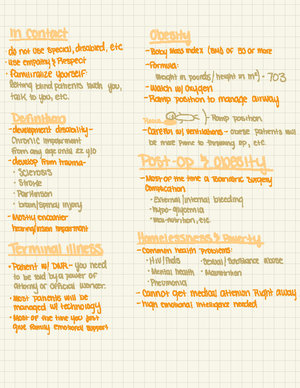 In contact
· do not use special, disabled, etc
· use empathy & Respect
· Familiarize yourself
letting blind patients touch you,
talk to you, etc.
Definition
- development disability -
Chronic impairment
from any age until 22 y/o
- develop from trauma -
· Sclerosis
· Stroke
· Parkinson
· brain/spinal injury
- Mostly encounter
hearing/vision impairment
Terminal illness
· Patient w/ DNR - you need
to be led by a power of
attorny or official worker.
· Most patients will be
managed w/ technology
· Most of the time you just
give family emotional support
Obesity
- Body Mass Index (BMI) of 30 or more
- Formula:
Weight in pounds / height in in²) · 703
- Watch w/ oxygen
- Ramp position to manage airway
Ramp position
- Careful w/ ventilations - obese patients will
be more prone to throwing up, etc.
Post-op & obesity
- Most of the time a Bariatric Surgery
Complication
· External/internal bleeding
· hypo-glycemia
· Mal-nutrition, etc
Homelessness & Poverty
- Common health problems:
· HIV/Aids
· Mental health
· Pneumonia
· Sexual/Substance abuse
· Malnutrition
- Cannot get medical attention right away
- high emotional intelligence needed